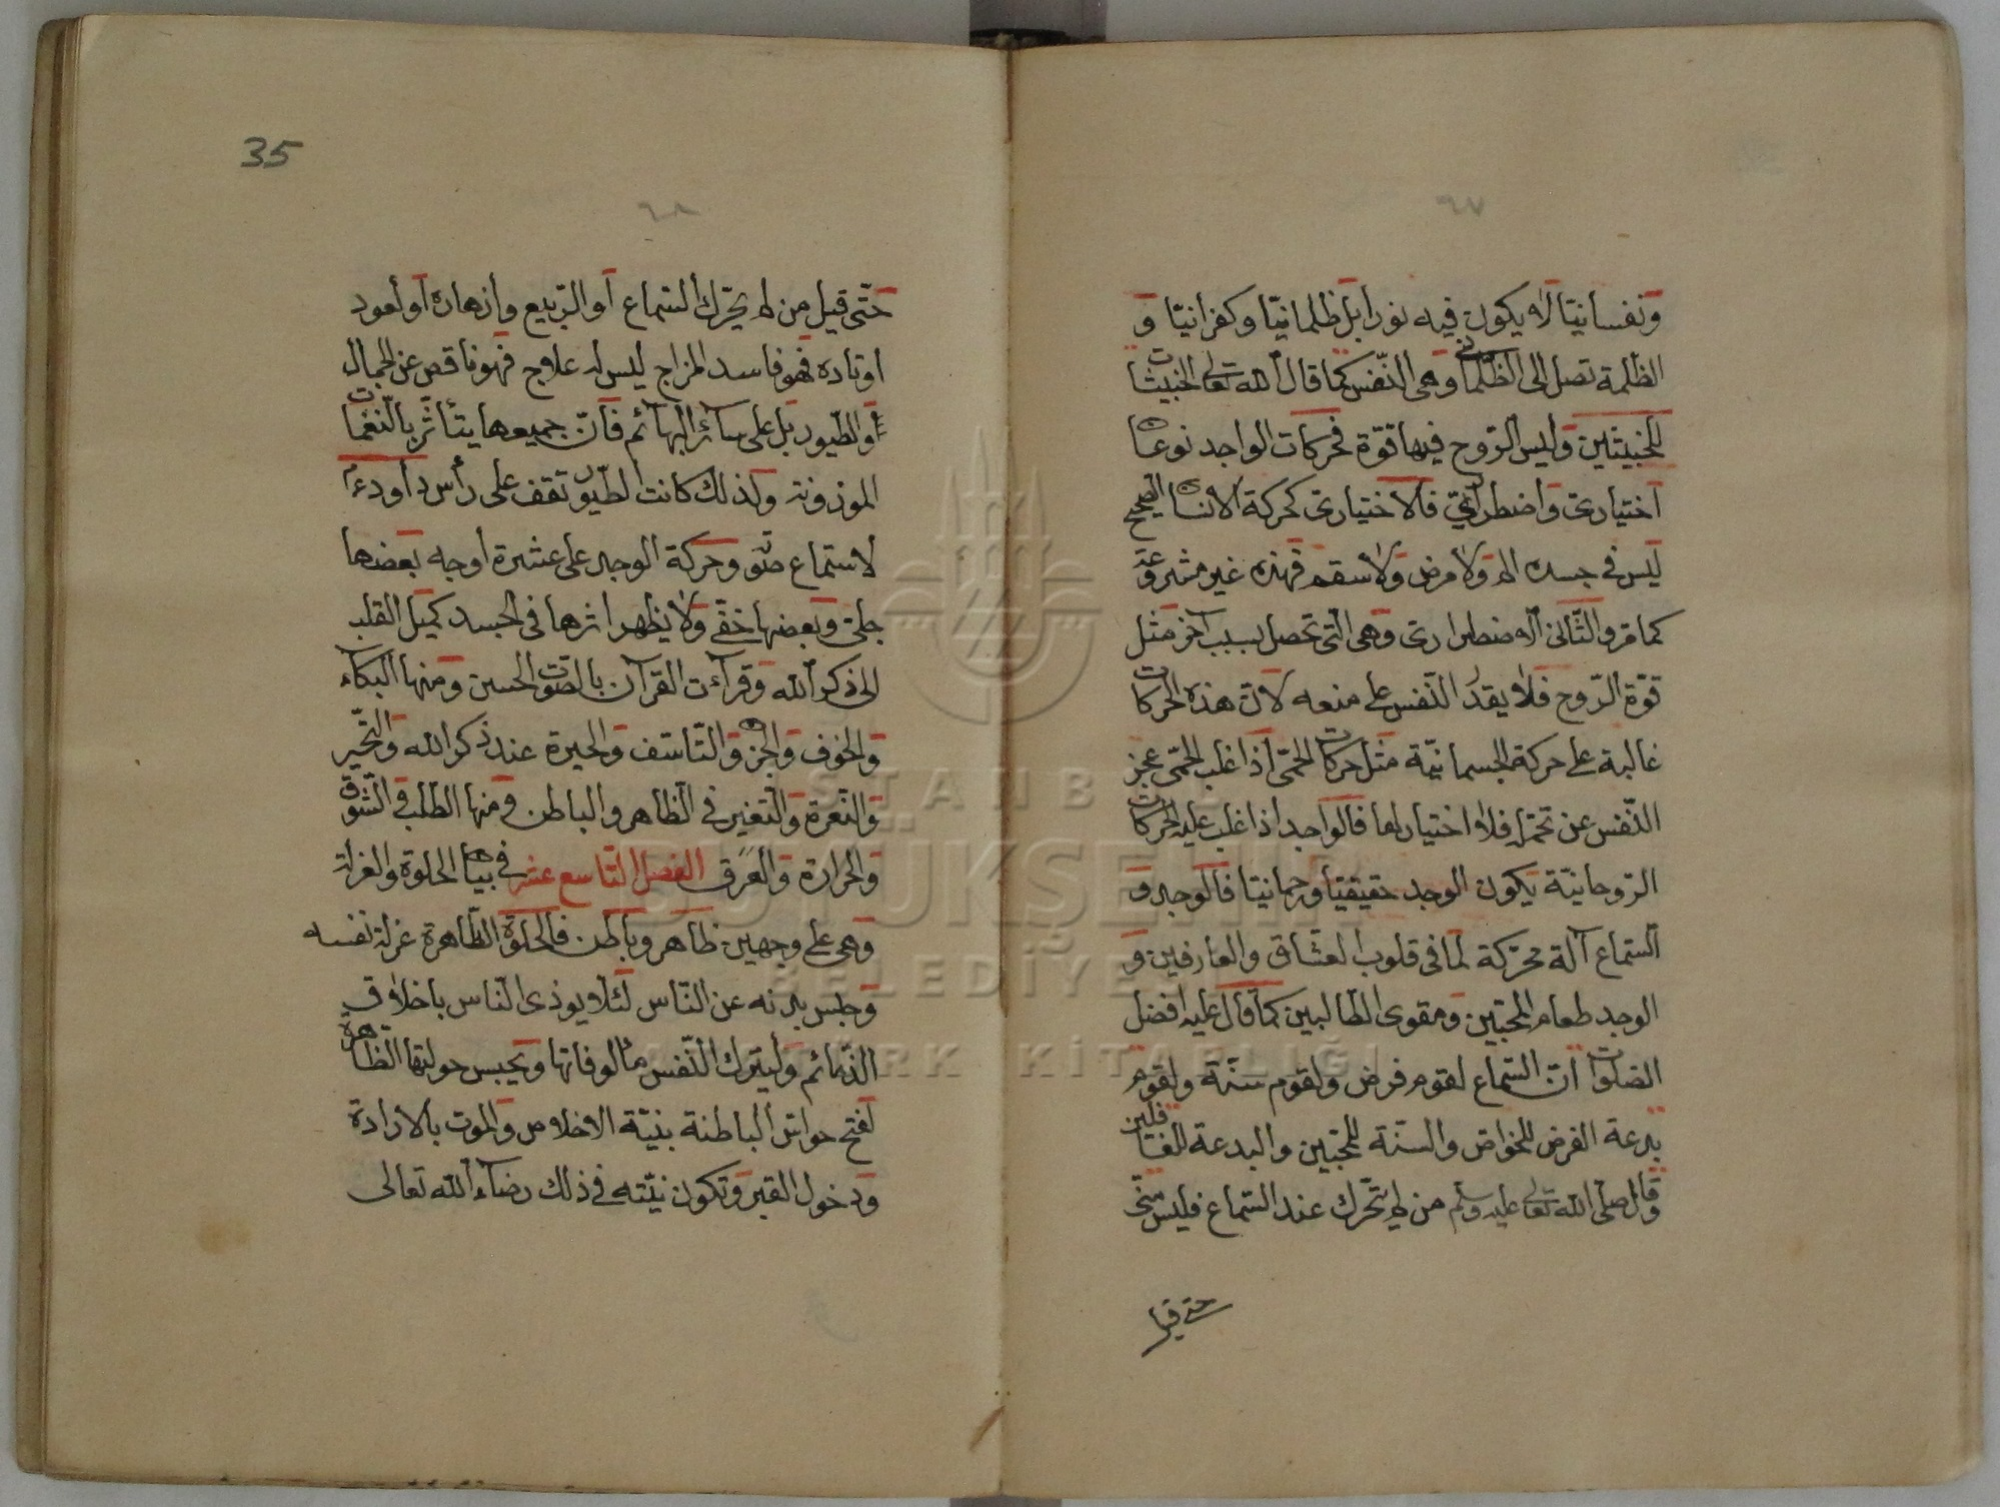 ٦٧
ونفسانيّا لا يكون فيه نورا بل ظلمانيّا وكفرانيّا و
الظلمة تصل الى الظلمانى وهى النّفس كما قال الله تعالى الخبيثات
للخبيثين وليس الرّوح فيها قوّة فحركات الواجد نوعان
اختيارىّ واضطرارىّ فالاختيارىّ كحركة الانسان الصحيح
ليس فى جسده الم ولا مرض ولا سقم فهذه غير مشروعة
كما مرّ والثّانى الاضطرارى وهى الّتى تحصل بسبب آخر مثل
قوّة الرّوح فلا يقدر النّفس على منعه لانّ هذه الحركات
غالبة على حركة الجسمانيّة مثل حركات الحمّى اذا غلب الحمّى عجز
النّفس عن تحمّله فلا اختيار لها فالواجد اذا غلب عليه الحركات
الرّوحانيّة يكون الوجد حقيقيّا ورحمانيّا فالوجد و
السّماع آلة محرّكة لما فى قلوب العشّاق والعارفين و
الوجد طعام المحبّين ومقوى الطّالبين كما قال عليه افضل
الصّلوات انّ السّماع لقوم فرض ولقوم سنّة ولقوم
بدعة الفرض للخواصّ والسنّة للمحبّين والبدعة للغافلين
وقال صلى الله تعالى عليه وسلم من لم يتحرّك عند السّماع فليس منّى
حتى قيل
35
٦٨
حتّى قيل من لم يحرّك السّماع او الرّبيع وازهاره او العود
اوتاده فهو فاسد المزاج ليس له علاج فهو ناقص عن الجمال
او الطّيور بل على سائر البهآئم فانّ جميعها يتأثّر بالنّغمات
الموزونة ولذلك كانت الطّيور تقف على رأس داود ءم
لاستماع صوته وحركة الوجد على عشرة اوجه بعضها
جلىّ وبعضها خفىّ ولا يظهر اثرها فى الجسد كميل القلب
الى ذكر الله وقرآءت القرآن بالصّوت الحسن ومنها البكآء
والخوف والحزن والتّأسّف والحيرة عند ذكر الله والتّحيّر
والنّعرة والتّغيّر فى الظّاهر والباطن ومنها الطّلب والشّوق
والحرارة والعرق الفصل التّاسع عشر فى بيان الخلوة والعزلة
وهى على وجهين ظاهر وباطن فالخلوة الظّاهرة عزلة نفسه
وحبس بدنه عن النّاس لئلّا يوذى النّاس باخلاق
الذّمائم وليترك النّفس مألوفاتها ويحبس حواسّها الظّاهرة
لفتح حواسّ الباطنة بنيّة الاخلاص والموت بالارادة
ودخول القبر وتكون نيّته فى ذلك رضآء الله تعالى